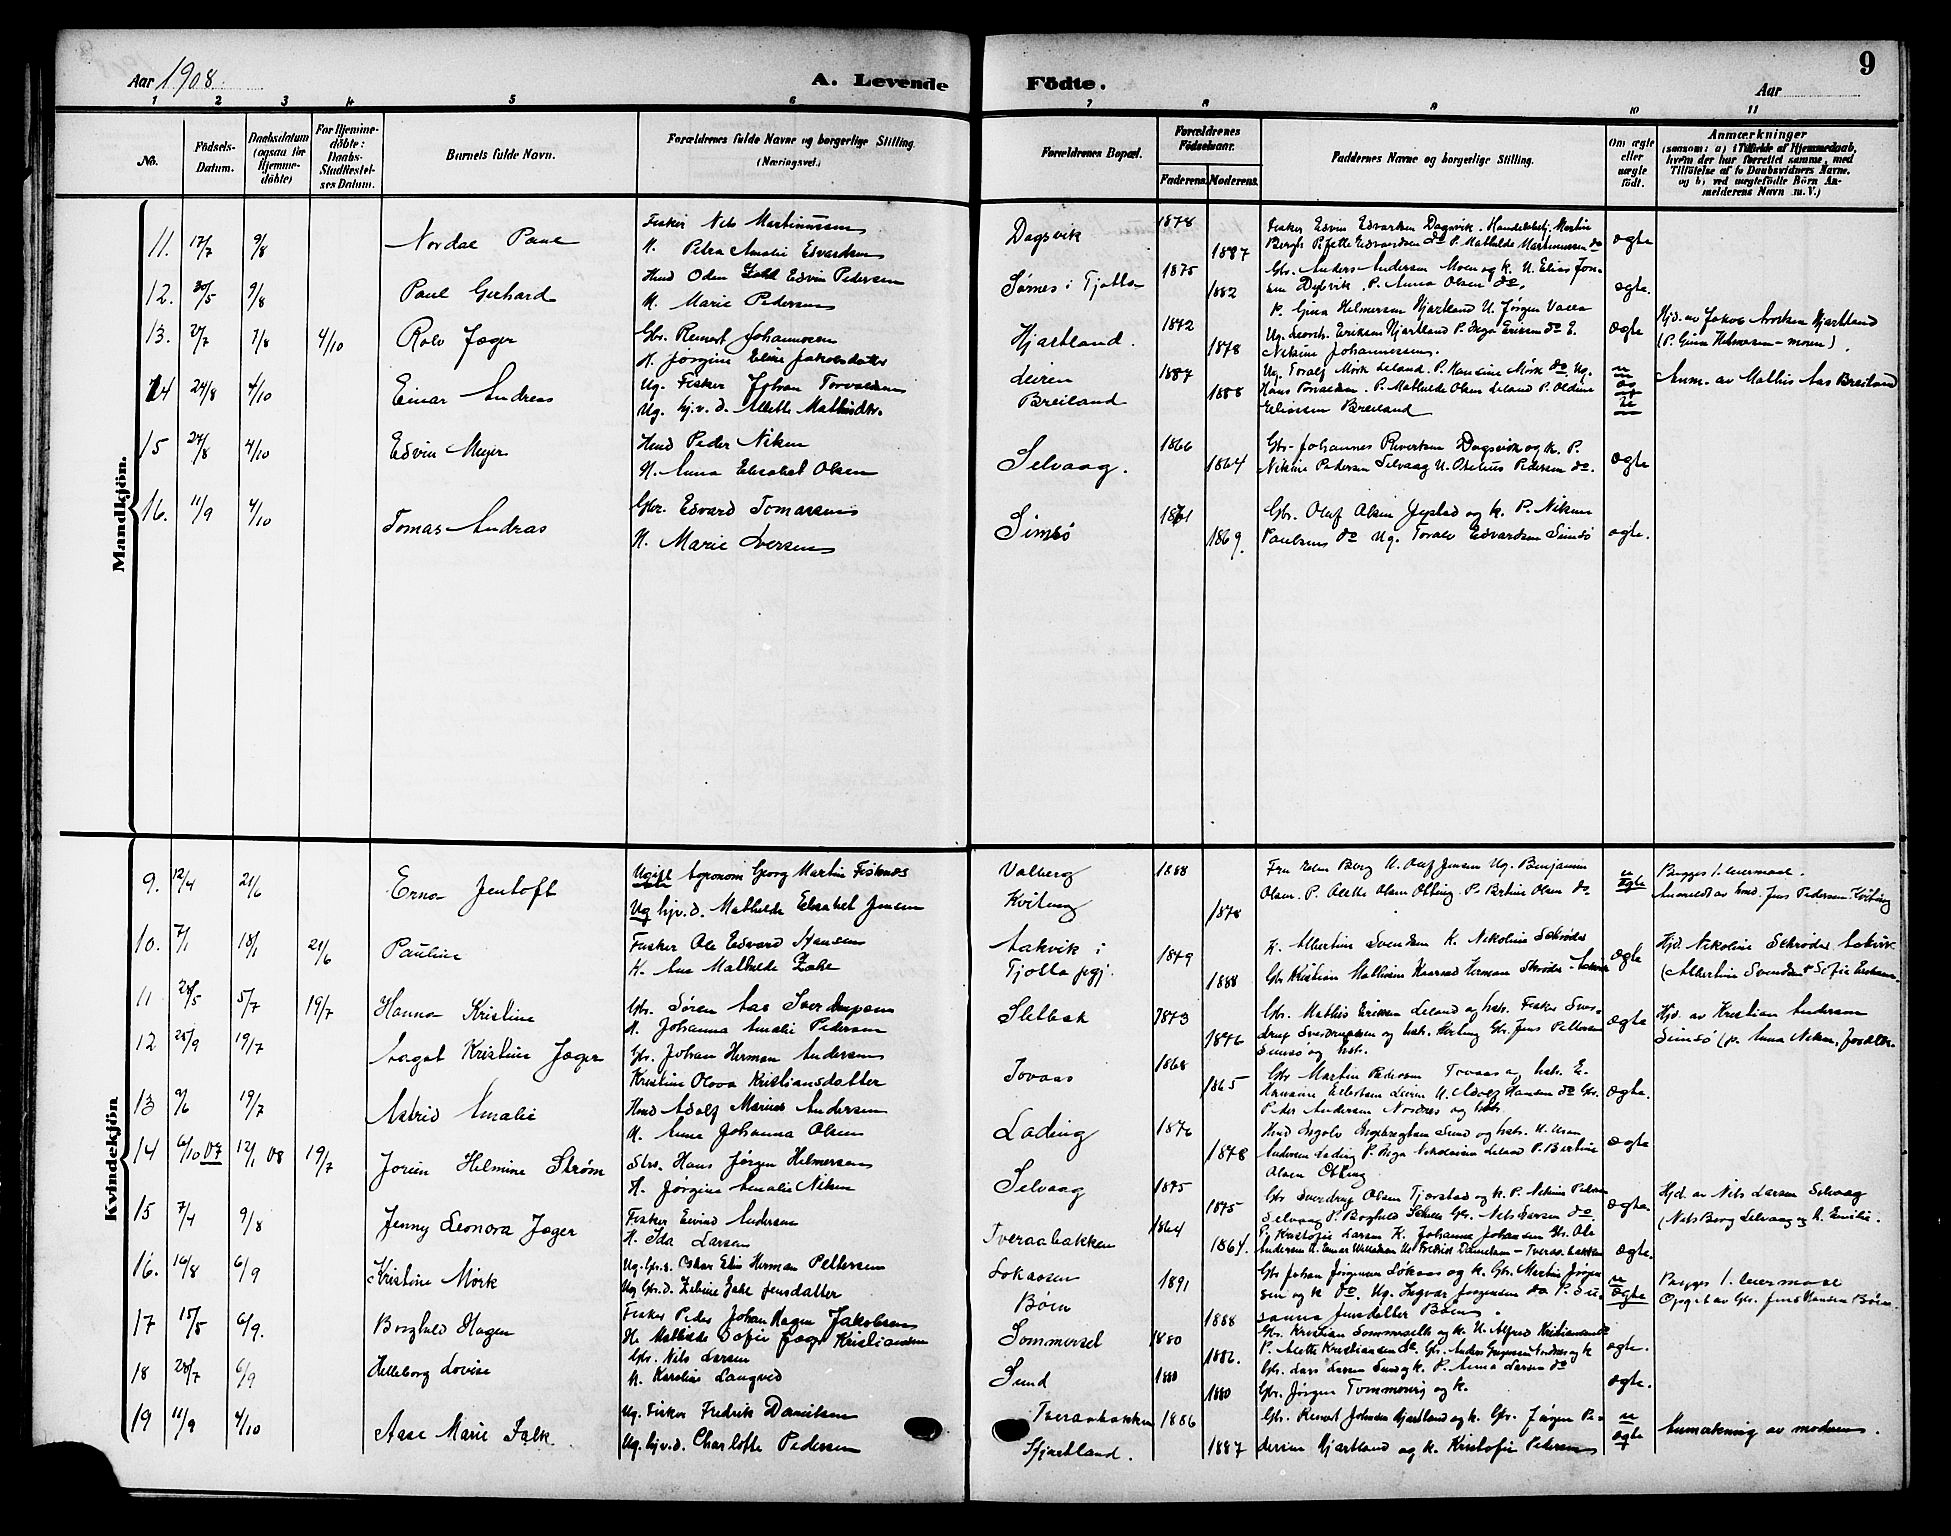 Aar 1908.
A. Levende Födte.
9
Aar
1 2 3 4 5 6 7 8 9 10 11
No.
Födsels-Datum.
Daabsdatum (ogsaa for Hjemme-döbte)
For Hjemme-döbte: Daabs-Stadfæstel-ses Datum.
Barnets fulde Navn.
Forældrenes fulde Navne og borgerlige Stilling. (Næringsvei.)
Forældrenes Bopæl.
Forældrenes Födselsaar.
Faderens. Moderens.
Faddernes Navne og borgerlige Stilling.
Om ægte eller uægte födt.
Anmærkninger
(saasom: a) i Tilfælde af Hjemmedaab, hvem der har forrettet samme, med Tilföielse af to Daabsvidners Navne, og b) ved uægtefödte Börn Anmelderens Navn m. V.)
Mandkjön.
11. 17/7 9/8 Nordal Paul
Fisker Nils Martinussen
H. Petra Amalie Edvardsen
Dagsvik 1878 1887
Fisker Edvin Edvardsen Dagsvik. Martin
ægte
12. 30/5 9/8 Paul Gerhard
Hmd Oden Edvin Pedersen
H. Marie Pedersen
Sørnes i Tjøtta 1875 1882
Gbr. Anders Andersen Moen og k. U. Elias Jon-
sen Dybvik. P. Anna Olsen do.
ægte.
13. 2/7 7/8 4/10 Rolv Jæger
Gbr. Reinert Johannesen
H. Jørgine Eline Jakobsdatter
Hjartland. 1872 1878
K. Gina Helmersen Hjartland U. Jørgen
Eriksen Hjartland P. Inga Eriksen do E.
Nelsine Johannessen.
ægte
Hjd. av Jakob Hjartland
(P. Gina Helmersen - moren).
14 24/8 4/10 Einar Andreas
Ug. Fisker Johan Torvaldsen
Ug. hjv. d. Alette Mathisdtr.
Leiren
Breiland
1887 1888
Ug. Toralf Mørk Leland. P. Hansine Mørk do. Ug.
Hans Torvaldsen. P. Mathilde Olsen Leland P. Oldine
Eliassen Breiland
Anm. av Mathis Aas Breiland
15 27/8 4/10 Edvin Meyer
Hmd Peder Nilsen
H. Anna Elisabet Olsen
Selvaag. 1866 1864
Gbr. Johannes Reinertsen Dagsvik og k. P.
Nikine Pedersen Selvaag U. Pedersen do.
ægte
16. 11/9 4/10 Tomas Andras
Gbr. Edvard Tomassen
H. Marie Iversen
Simsø 1871 1869.
Gbr. Olaf Olsen og k. P.
Paulsens do Ug. Toralv Edvardsen Simsø
ægte.
Kvindekjön
9. 12/4 21/6 Erna Jentoft
Ugift Agronom Georg Martin Fisknes
Ug hjv. d. Mathilde Elisabet Jensen
Valberg
Kviting
1888 1878
Fru Berg U. Olaf Jensen Ug. Benjamin
Olsen. P. Alette Olsen Otting. P. Bertine Olsen do
u
ægte
Begges 1. leiermaal.
Anmeldt av Hmd. Jens Pedersen Kviting
10. 7/1 18/1 21/6 Pauline
Fisker Ole Edvard Hansen
H. Ane Mathilde
Aakvik i
Tjøtta pgj.
1849 1888
K. Albertine Svendsen K. Nikoline Schrøder
Gbr Kristian Herman
ægte
Hjd Nikoline Schrøder Aakvik
(Albertine Svendsen & Sofie
11 28/5 5/7 19/7 Hanna Kristine
Gbr. Søren Aas Sverdrupsen
H. Johanna Amalie Pedersen
Sletbak 1873 1876
Gbr. Mathis Eriksen Leland og hst. Fisker Sver-
drup Sverdrupsen og hst. Gbr. Jens Pettersen
Simsø og hst.
ægte
Hjd. av Kristian Andersen
Simsø (P. Anna Nilsen,
12 25/9 19/7 Kristine Jæger
Gbr. Johan Herman Andersen
Kristine Olova Kristiansdatter
Tovaas 1868 1865
Gbr Martin Pedersen Tovaas og hst. E.
Hansine Eilertsen Leiren U. Adolf Hansen do Gbr.
Peder Andersen Nordnes og hst.
ægte.
13 9/6 19/7 Astrid Amalie
Hmd Adolf Marius Andersen
H. Anna Johanna Olsen
Lading 1876 1878
Hmd Ingolv Ingebrigtsen Sund og hst. U.
Andersen Lading P. Inga Leland P. Bertine
Olsen Otting
ægte
14 6/10 07 12/1 08 19/7 Jorun Helmine Strøm
Hans Jørgen Helmersen
H. Jørgine Amalie Nilsen
Selvaag 1875 1875
Gbr Sverdrup Olsen Tjørstad og k. P. Nikine Peders
Selvaag P. Borghild Gbr. Nils Larsen do
ægte.
Hjd. av Nils Larsen Selvaag
(Nils Berg Selvaag og h. Emilie.
15 7/4 9/8 Jenny Leonora Jæger
Fisker Eivind Andersen
H. Ida Larsen
Tveraabakken 1864 1864.
P. Kristofie Larsen K. Johanna Johansen Gbr. Ole
Andersen Ug Fredrik Danielsen - Tveraabakken
ægte.
16. 16/8 6/9 Kristine Mørk
Ug. Gbr. s. Oskar Elis Herman Pettersen
Ug Gbr. d. Jensdatter
Løkaasen
Bøen
1891 1888
Gbr Johan Jørgensen Løkaas og k. Gbr. Martin Jørgen
sen og k do. Ug. Ingvar Jørgensen do P. Su-
sanna Jensdatter Bøen.
u
ægte
Begges 1. leiermaal
Opgit av Gbr. Jens Hansen Bøen
17 15/5 6/9. Borghild Hagen
Fisker Peder Johan Hagen Jakobsen
H. Mathilde Sofie Jæger Kristiansen
Sommerset 1880 1882.
Gbr. Kristian Sommerseth og k. U. Alfred Kristiansen do
P. Alette Kristiansen do. Gbr. Anders Nordnes og k
ægte.
18 28/7 6/9 Helleborg Lovise
Gbr. Nils Larsen
H. Karoline Langved
Sund 1880 1880
Gbr. Lars Larsen Sund og k. P. Anna Larsen do
Gbr. Jørgen Tommosvig og k.
ægte.
19 11/9 4/10 Aase Marie Falk
Ug. Fisker Fredrik Danielsen
Ug. hjv. d. Charlotte Pedersen
Tveraabakken
Hjartland.
1886 1887
Gbr. Reinert Johansen Hjartland og k. Gbr. Jørgen Pe-
dersen Hjartland og k. Kristofie Petersen
u
ægte
Anmerkning av moderen.